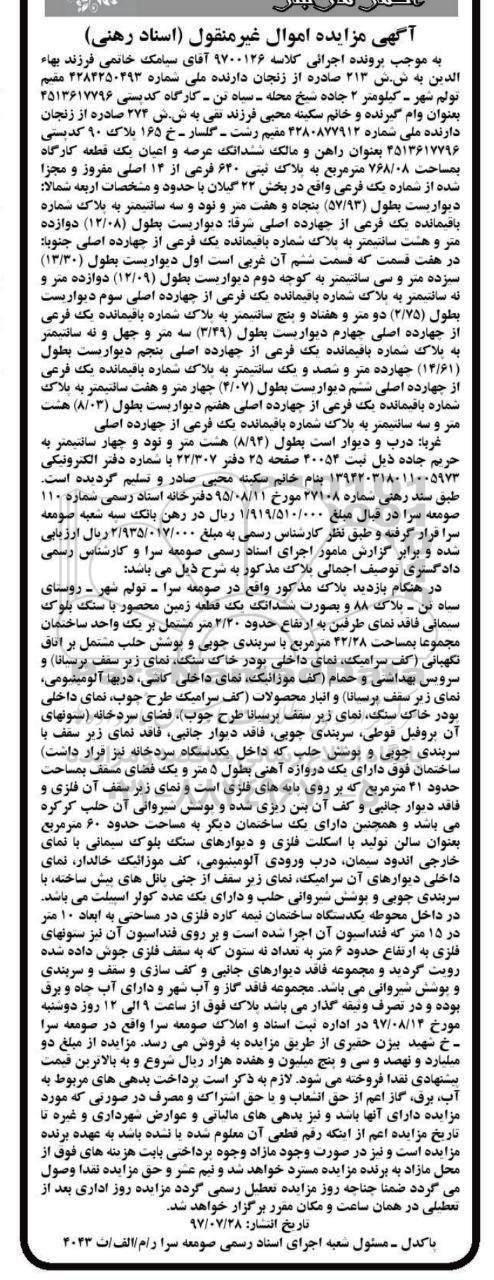 آگهی مزایده اموال غیرمنقول (اسناد رهنی)
به موجب پرونده اجرائی کلاسه ۹۷۰۰۱۲۶ آقای سیامک خاتمی فرزند بهاء
الدین به ش.ش ۲۱۳ صادره از زنجان دارنده ملی شماره ۴۲۸۴۲۵۰۴۹۳ مقیم
تولم شهر ـ کیلومتر ۲ جاده شیخ محله ـ سیاه تن ـ کارگاه کدپستی ۴۵۱۳۶۱۷۷۹۶
بعنوان وام گیرنده و خانم سکینه محبی فرزند تقی به ش.ش ۲۷۴ صادره از زنجان
دارنده ملی شماره ۴۲۸۰۸۷۷۹۱۲ مقیم رشت ـ گلسار ـ خ ۱۶۵ پلاک ۹۰ کدپستی
۴۵۱۳۶۱۷۷۹۶ بعنوان راهن و مالک ششدانگ عرصه و اعیان یک قطعه کارگاه
بمساحت ۷۶۸/۰۸ مترمربع به پلاک ثبتی ۶۴۰ فرعی از ۱۴ اصلی مفروز و مجزا
شده از شماره یک فرعی واقع در بخش ۲۲ گیلان با حدود و مشخصات اربعه شمالا:
دیواریست بطول (۵۷/۹۳) پنجاه و هفت متر و نود و سه سانتیمتر به پلاک شماره
باقیمانده یک فرعی از چهارده اصلی شرقا: دیواریست بطول (۱۲/۰۸) دوازده
متر و هشت سانتیمتر به پلاک شماره باقیمانده یک فرعی از چهارده اصلی جنوبا:
در هفت قسمت که قسمت ششم آن غربی است اول دیواریست بطول (۱۳/۳۰)
سیزده متر و سی سانتیمتر به کوچه دوم دیواریست بطول (۱۲/۰۹) دوازده متر و
نه سانتیمتر به پلاک شماره باقیمانده یک فرعی از چهارده اصلی سوم دیواریست
بطول (۲/۷۵) دو متر و هفتاد و پنج سانتیمتر به پلاک شماره باقیمانده یک فرعی
از چهارده اصلی چهارم دیواریست بطول (۳/۴۹) سه متر و چهل و نه سانتیمتر
به پلاک شماره باقیمانده یک فرعی از چهارده اصلی پنجم دیواریست بطول
(۱۴/۶۱) چهارده متر و شصد و یک سانتیمتر به پلاک شماره باقیمانده یک فرعی
از چهارده اصلی ششم دیواریست بطول (۴/۰۷) چهار متر و هفت سانتیمتر به پلاک
شماره باقیمانده یک فرعی از چهارده اصلی هفتم دیواریست بطول (۸/۰۳) هشت
متر و سه سانتیمتر به پلاک شماره باقیمانده یک فرعی از چهارده اصلی
غربا: درب و دیوار است بطول (۸/۹۴) هشت متر و نود و چهار سانتیمتر به
حریم جاده ذیل ثبت ۴۰۰۵۴ صفحه ۲۵ دفتر ۲۲/۳۰۷ با شماره دفتر الکترونیکی
۱۳۹۴۲۰۳۱۸۰۱۱۰۰۵۹۷۳ بنام خانم سکینه محبی صادر و تسلیم گردیده است.
طبق سند رهنی شماره ۲۷۱۰۸ مورخ ۹۵/۰۸/۱۱ دفترخانه اسناد رسمی شماره ۱۱۰
صومعه سرا در قبال مبلغ ۱/۹۱۹/۵۱۰/۰۰۰ ریال در رهن بانک سپه شعبه صومعه
سرا قرار گرفته و طبق نظر کارشناس رسمی به مبلغ ۲/۹۳۵/۰۱۷/۰۰۰ ریال ارزیابی
شده و برابر گزارش مامور اجرای اسناد رسمی صومعه سرا و کارشناس رسمی
دادگستری توصیف اجمالی پلاک مذکور به شرح ذیل می باشد:
در هنگام بازدید پلاک مذکور واقع در صومعه سرا ـ تولم شهر ـ روستای
سیاه تن ـ پلاک ۸۸ و بصورت ششدانگ یک قطعه زمین محصور با سنگ بلوک
سیمانی فاقد نمای طرفین به ارتفاع حدود ۲/۲۰ متر مشتمل بر یک واحد ساختمان
مجموعا بمساحت ۴۲/۲۸ مترمربع با سربندی چوبی و پوشش حلب مشتمل بر اتاق
نگهبانی (کف سرامیک، نمای داخلی پودر خاک سنگ، نمای زیر سقف پرسیانا) و
سرویس بهداشتی و حمام (کف موزائیک، نمای داخلی کاشی، دربها آلومینیومی،
نمای زیر سقف پرسیانا) و انبار محصولات (کف سرامیک طرح چوب، نمای داخلی
پودر خاک سنگ، نمای زیر سقف پرسیانا طرح چوب)، فضای سردخانه (ستونهای
آن پروفیل قوطی، سربندی چوبی، فاقد دیوار جانبی، فاقد نمای زیر سقف با
سربندی چوبی و پوشش حلب که داخل یکدستگاه سردخانه نیز قرار داشت)
ساختمان فوق دارای یک دروازه آهنی بطول ۵ متر و یک فضای مسقف بمساحت
حدود ۴۱ مترمربع که بر روی پایه های فلزی است و نمای زیر سقف آن فلزی و
فاقد دیوار جانبی و کف آن بتن ریزی شده و پوشش شیروانی آن حلب کرکره
می باشد و همچنین دارای یک ساختمان دیگر به مساحت حدود ۶۰ مترمربع
بعنوان سالن تولید با اسکلت فلزی و دیوارهای سنگ بلوک سیمانی با نمای
خارجی اندود سیمان، درب ورودی آلومینیومی، کف موزائیک خالدار، نمای
داخلی دیوارهای آن سرامیک، نمای زیر سقف از جنس پانل های پیش ساخته، با
سربندی چوبی و پوشش شیروانی حلب و دارای یک عدد کولر اسپیلت می باشد.
در داخل محوطه یکدستگاه ساختمان نیمه کاره فلزی در مساحتی به ابعاد ۱۰ متر
در ۱۵ متر که فنداسیون آن اجرا شده است و بر روی فنداسیون آن نیز ستونهای
فلزی به ارتفاع حدود ۶ متر به تعداد نه ستون که به سقف فلزی جوش داده شده
رویت گردید و مجموعه فاقد دیوارهای جانبی و کف سازی و سقف و سربندی
و پوشش شیروانی می باشد. مجموعه فاقد گاز و آب شهر و دارای آب چاه و برق
بوده و در تصرف وثیقه گذار می باشد پلاک فوق از ساعت ۹ الی ۱۲ روز دوشنبه
مورخ ۹۷/۰۸/۱۴ در اداره ثبت اسناد و املاک صومعه سرا واقع در صومعه سرا
ـ خ شهید بیژن حقیری از طریق مزایده به فروش می رسد. مزایده از مبلغ دو
میلیارد و نهصد و سی و پنج میلیون و هفده هزار ریال شروع و به بالاترین قیمت
پیشنهادی نقدا فروخته می شود. لازم به ذکر است پرداخت بدهی های مربوط به
آب، برق، گاز اعم از حق انشعاب و یا حق اشتراک و مصرف در صورتی که مورد
مزایده دارای آنها باشد و نیز بدهی های مالیاتی و عوارض شهرداری و غیره تا
تاریخ مزایده اعم از اینکه رقم قطعی آن معلوم شده یا نشده باشد به عهده برنده
مزایده است و نیز در صورت وجود مازاد وجوه پرداختی بابت هزینه های فوق از
محل مازاد به برنده مزایده مسترد خواهد شد و نیم عشر و حق مزایده نقدا وصول
می گردد ضمنا چناچه روز مزایده تعطیل رسمی گردد مزایده روز اداری بعد از
تعطیلی در همان ساعت و مکان مقرر برگزار خواهد شد.
تاریخ انتشار: ۹۷/۰۷/۲۸
پاکدل ـ مسئول شعبه اجرای اسناد رسمی صومعه سرا ر/م/الف/ث ۴۰۴۳